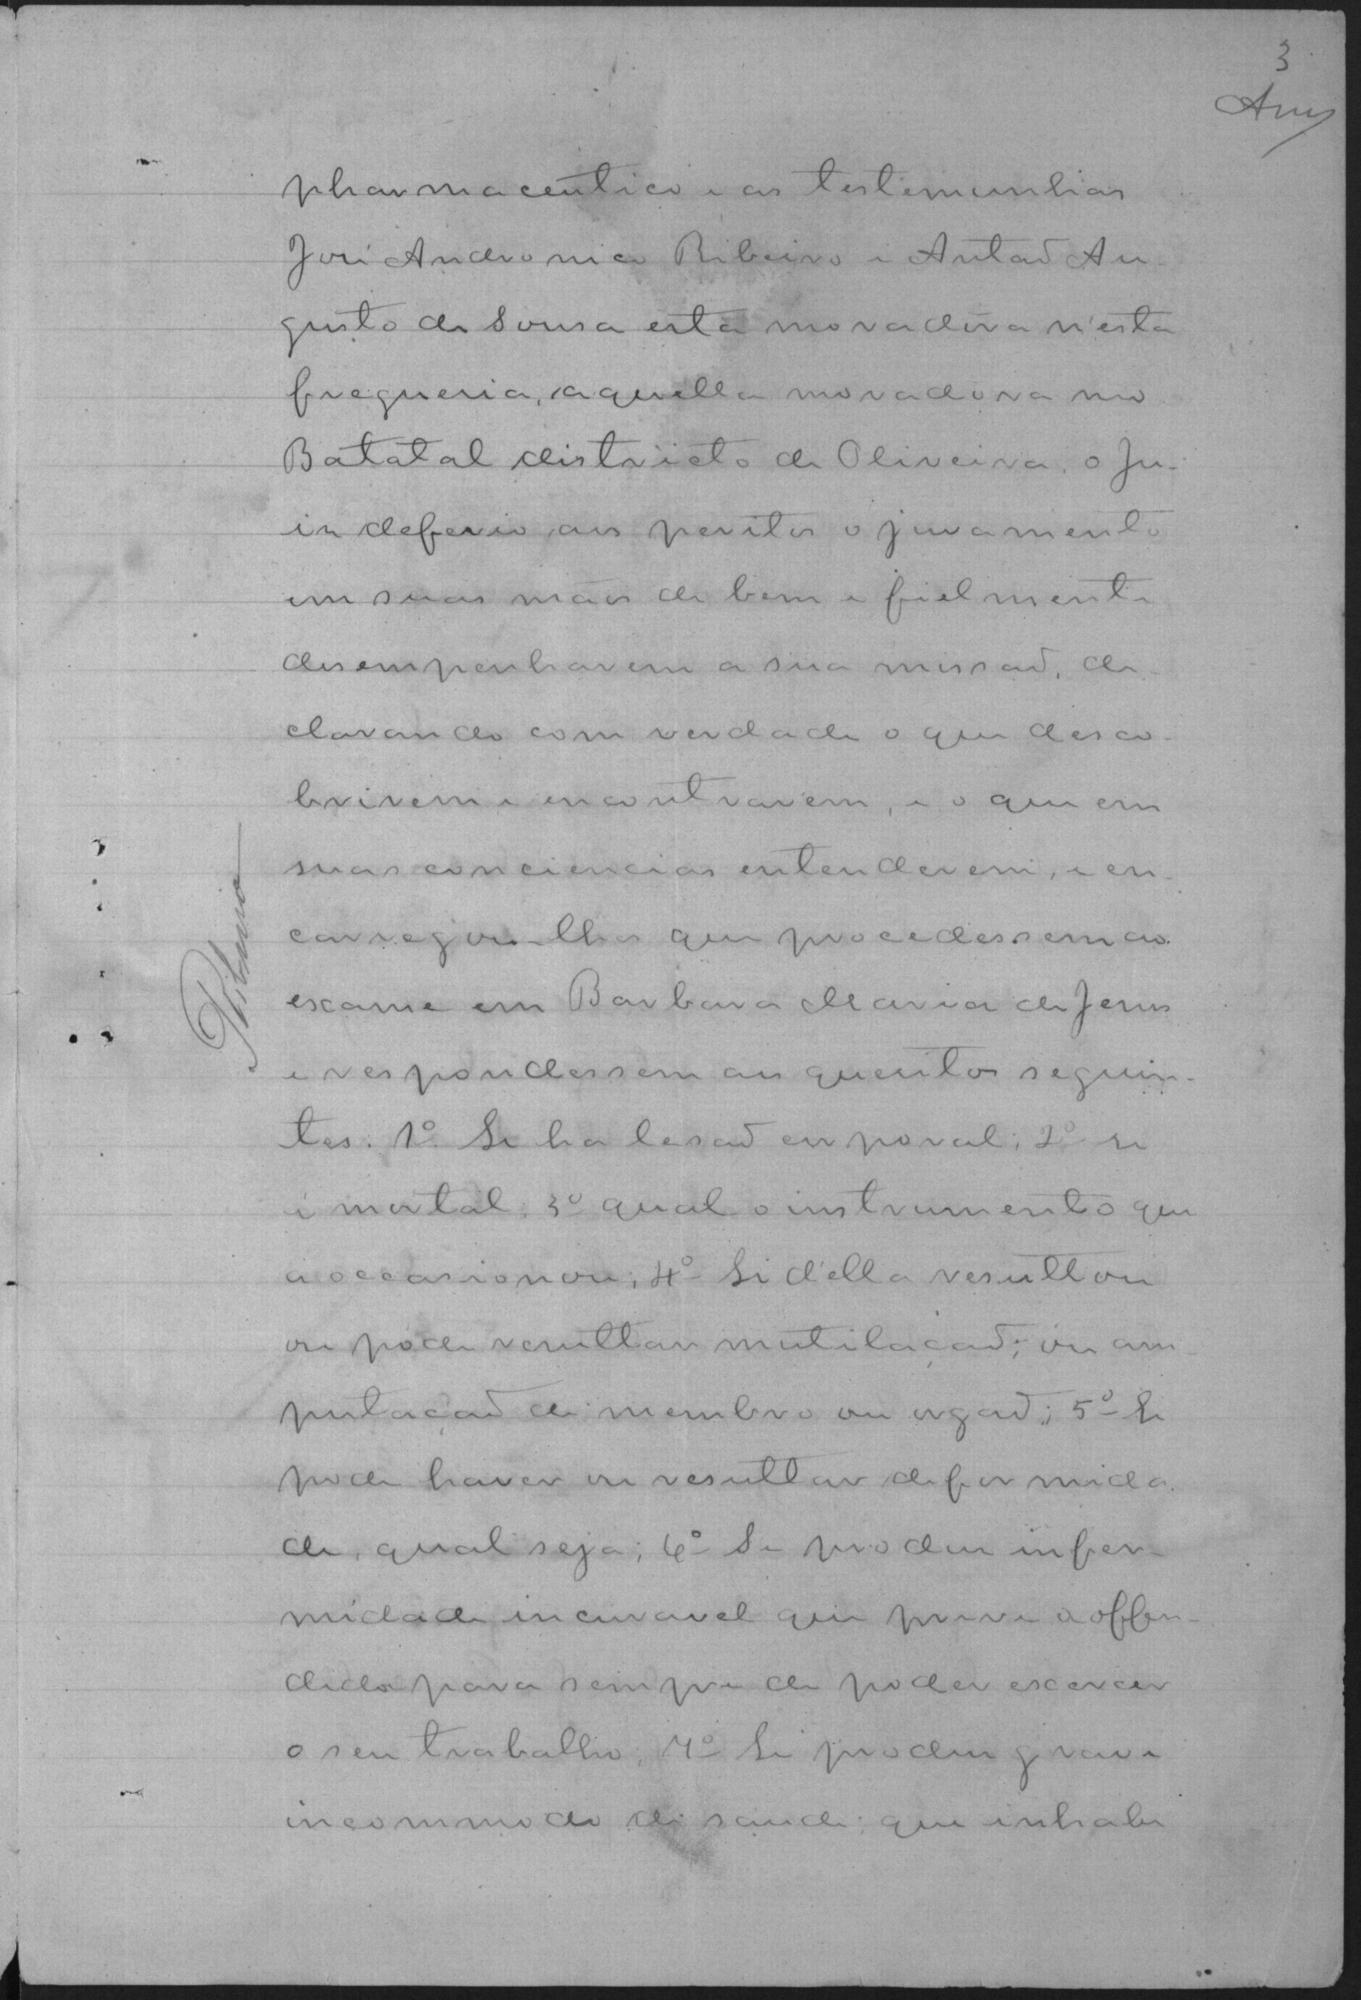 3
pharmaceutico e as testemunhas
José Andronico Ribeiro e Antaõ Au-
gusto de Sousa esta moradora n'esta
freguesia, aquella moradora no
Batatal districto de Oliveira, o Ju-
iz deferio aos peritos o juramento
em suas mãos de bem e fielmente
desempenharem a sua missaõ, de-
clarando com verdade o que desco-
brirem e encontrarem, e o que em
suas conciencias entenderem, e en-
carregou-lhes que procedessem ao
exame em Barbara Maria de Jesus
e respondessem aos quesitos seguin-
tes: 1º Se ha lesaõ corporal; 2º se
é mortal; 3º qual o instrumento que
a occasionou; 4º Si d'ella resultou
ou pode resultar mutilaçaõ; ou am-
putaçaõ de membro ou orgaõ; 5º Se
pode haver ou resultar deformida-
de, qual seja; 6º Se produz infer-
midade incuravel que prive a offen-
dida para sempre de poder exercer
o seu trabalho; 7º Se produz grave
incommodo de saude; que inhabi
Ribeiro